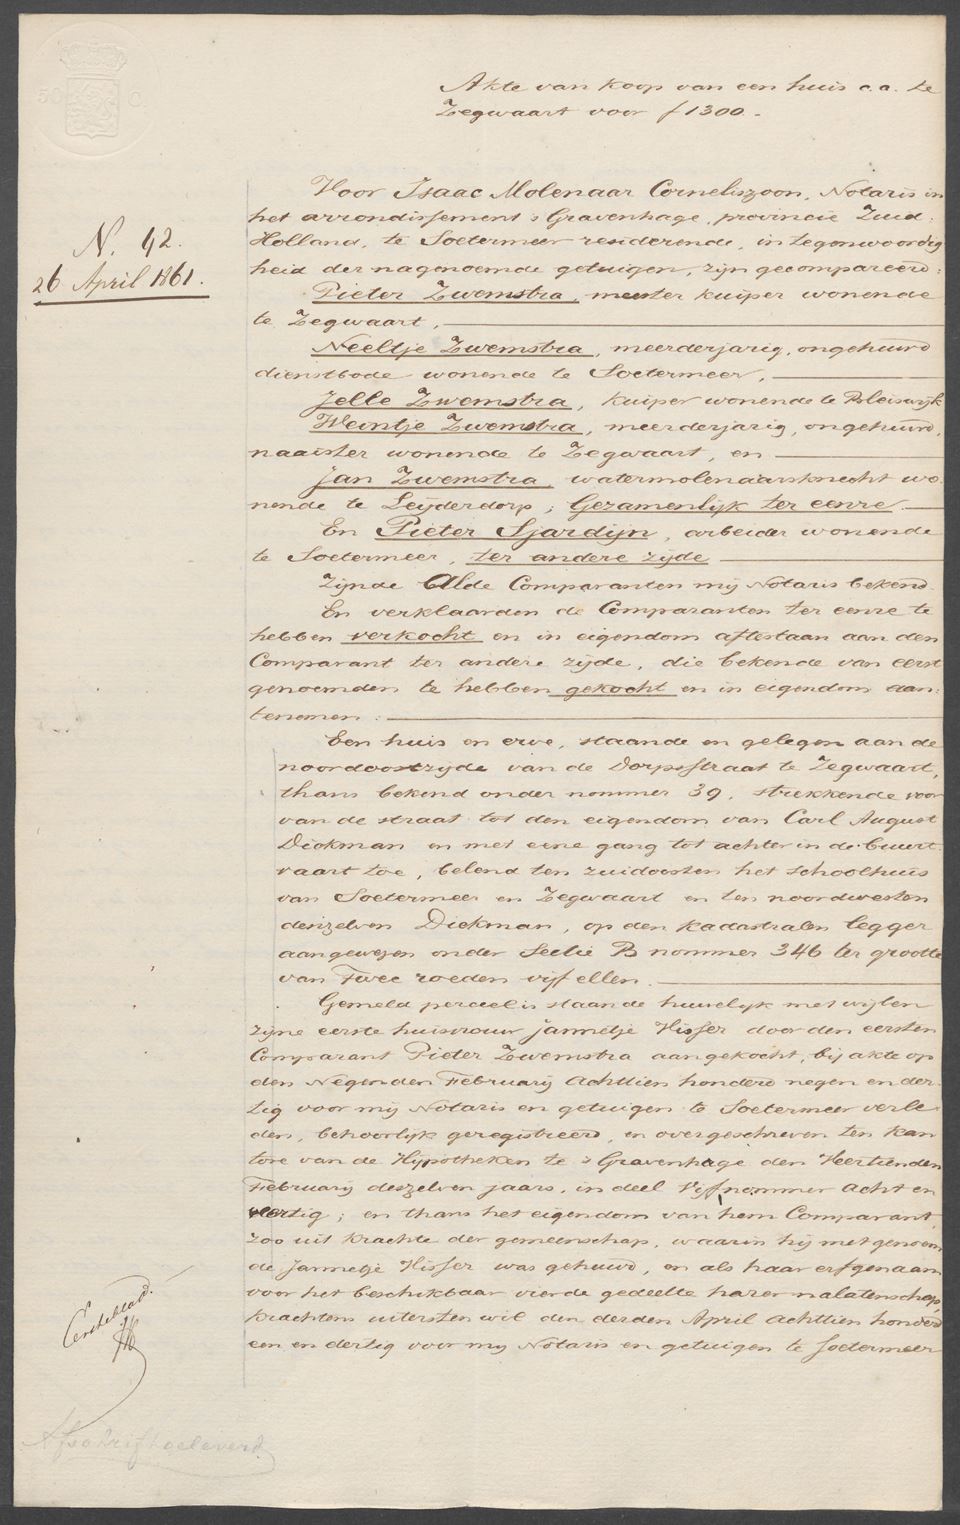 50 C.
Akte van koop van een huis c.a. te
Zegwaart voor f 1300.-
N. 42.
26 April 1861.
Voor Isaac Molenaar Corneliszoon, Notaris in
het arrondissement 's Gravenhage, provincie Zuid-
Holland, te Soetermeer resideerende, in tegenwoordig
heid der nagenoemde getuigen, zijn gecompareerd:
Pieter Zwemstra, meester kuiper wonende
te Zegwaart,
Neeltje Zwemstra, meerderjarig, ongehuwd
dienstbode wonende te Soetermeer,
Jelle Zwemstra, kuiper wonende te Bleiswijk
Weintje Zwemstra, meerderjarig, ongehuwd,
naaister wonende te Zegwaart, en
Jan Zwemstra, watermolenaarsknecht wo-
nende te Leijderdorp, Gezamenlijk ter eenre.
En Pieter Sjardijn, arbeider wonende
te Soetermeer, ter andere zijde
Zijnde Alde Comparanten mij Notaris bekend.
En verklaarden de Comparanten ter eenre te
hebben verkocht en in eigendom aftestaan aan den
Comparant ter andere zijde, die bekende van eerst
genoemden te hebben gekocht en in eigendom aan-
tenemen:
Een huis en erve, staande en gelegen aan de
noordoostzijde van de Dorpsstraat te Zegwaart,
thans bekend onder nommer 39, strekkende voor
van de straat tot den eigendom van Carl August
Diekman en met eene gang tot achter in de buurt-
vaart toe, belend ten zuidoosten het schoolhuis
van Soetermeer en Zegwaart en ten noordwesten
denzelven Diekman, op den kadastralen legger
aangewezen onder Sectie B nommer 346 ter grootte
van Twee roeden vijf ellen.
Gemeld perceel is staande huwelijk met wijlen
zijne eerste huisvrouw Jannetje Hisser door den eersten
Comparant Pieter Zwemstra aangekocht, bij akte op
den Negenden Februarij Achttien honderd negen en der-
tig voor mij Notaris en getuigen te Soetermeer verle-
den, behoorlijk geregistreerd, en overgeschreven ten kan
tore van de Hijpotheken te 's Gravenhage den Veertienden
Februarij deszelven jaars, in deel Vijf, nommer acht en
veertig; en thans het eigendom van hem Comparant,
zoo uit krachte der gemeenschap, waarin hij met genoem
de Jannetje Hisser was gehuwd, en als haar erfgenaam
voor het beschikbaar vierde gedeelte harer nalatenschap,
krachtens uitersten wil den derden April achttien honderd
een en dertig voor mij Notaris en getuigen te Soetermeer
Eersteblad.
Afschrift geleverd